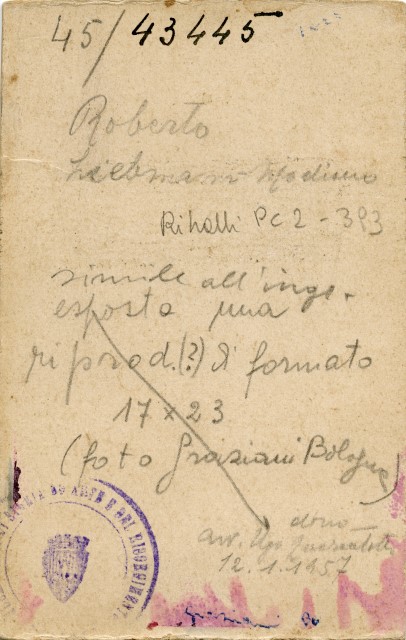 45/43445
Roberto
Liebmann Modiano
Ritratti PC 2 - 393
simile all'ingr.
esposta una
riprod. (?) di formato
17 x 23
(foto Graziani Bologna)
dono
avv. Ugo
12.1.1957
STORIA ED ARTE E DEL RISORGIMENTO